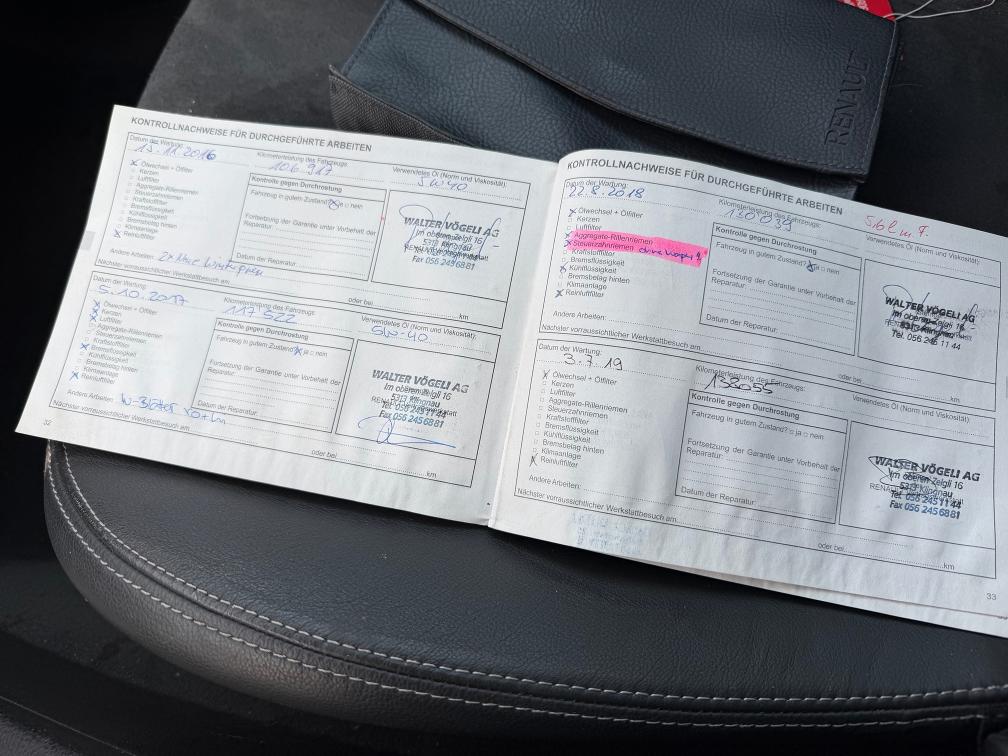 RENAULT
KONTROLLNACHWEISE FÜR DURCHGEFÜHRTE ARBEITEN
Datum der Wartung: Kilometerleistung des Fahrzeugs: Verwendetes Öl (Norm und Viskosität):
15.11.2016 106 917 5W40
Ölwechsel + Ölfilter
Kerzen
Luftfilter
Aggregate-Rillenriemen
Steuerzahnriemen
Kraftstofffilter
Bremsflüssigkeit
Kühlflüssigkeit
Bremsbelag hinten
Klimaanlage
Reinluftfilter
Kontrolle gegen Durchrostung
Fahrzeug in gutem Zustand? ja nein
Fortsetzung der Garantie unter Vorbehalt der
Reparatur:
Datum der Reparatur:
WALTER VÖGELI AG
Im oberen Zelgli 16
5313 Klingnau
Tel. 056 245 11 44
Fax 056 245 68 81
Andere Arbeiten:
Nächster vorraussichtlicher Werkstattbesuch am
oder bei km
Datum der Wartung: Kilometerleistung des Fahrzeugs: Verwendetes Öl (Norm und Viskosität):
5.10.2017 117 522 5W-40
Ölwechsel + Ölfilter
Kerzen
Luftfilter
Aggregate-Rillenriemen
Steuerzahnriemen
Kraftstofffilter
Bremsflüssigkeit
Kühlflüssigkeit
Bremsbelag hinten
Klimaanlage
Reinluftfilter
Kontrolle gegen Durchrostung
Fahrzeug in gutem Zustand? ja nein
Fortsetzung der Garantie unter Vorbehalt der
Reparatur:
Datum der Reparatur:
WALTER VÖGELI AG
Im oberen Zelgli 16
5313 Klingnau
Tel. 056 245 11 44
Fax 056 245 68 81
Andere Arbeiten:
Nächster vorraussichtlicher Werkstattbesuch am
oder bei km
32
KONTROLLNACHWEISE FÜR DURCHGEFÜHRTE ARBEITEN
Datum der Wartung: Kilometerleistung des Fahrzeugs: Verwendetes Öl (Norm und Viskosität):
22.8.2018 130 039
Ölwechsel + Ölfilter
Kerzen
Luftfilter
Aggregate-Rillenriemen
Steuerzahnriemen
Kraftstofffilter
Bremsflüssigkeit
Kühlflüssigkeit
Bremsbelag hinten
Klimaanlage
Reinluftfilter
Kontrolle gegen Durchrostung
Fahrzeug in gutem Zustand? ja nein
Fortsetzung der Garantie unter Vorbehalt der
Reparatur:
Datum der Reparatur:
WALTER VÖGELI AG
Im oberen Zelgli 16
Tel. 056 245 11 44
Andere Arbeiten:
Nächster vorraussichtlicher Werkstattbesuch am
oder bei km
Datum der Wartung: Kilometerleistung des Fahrzeugs: Verwendetes Öl (Norm und Viskosität):
3.7.19 138055
Ölwechsel + Ölfilter
Kerzen
Luftfilter
Aggregate-Rillenriemen
Steuerzahnriemen
Kraftstofffilter
Bremsflüssigkeit
Kühlflüssigkeit
Bremsbelag hinten
Klimaanlage
Reinluftfilter
Kontrolle gegen Durchrostung
Fahrzeug in gutem Zustand? ja nein
Fortsetzung der Garantie unter Vorbehalt der
Reparatur:
Datum der Reparatur:
WALTER VÖGELI AG
Im oberen Zelgli 16
5313 Klingnau
Tel. 056 245 11 44
Fax 056 245 68 81
Andere Arbeiten:
Nächster vorraussichtlicher Werkstattbesuch am
oder bei km
33